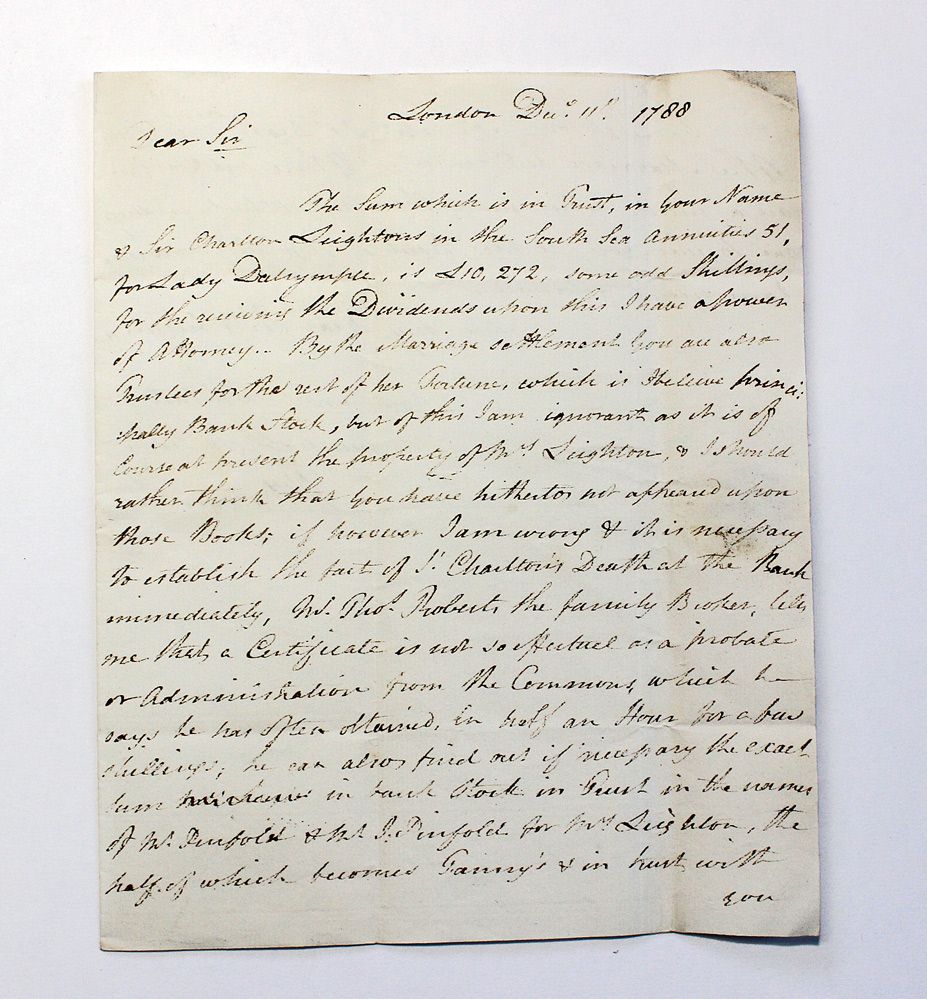 London Decr. 11th. 1788
Dear Sir
The Sum which is in Trust, in your Name
& Sir Charlton Leightons in the South Sea Annuities 51,
for Lady Dalrymple, is £10,272, some odd Shillings,
for the receiving the Dividends upon this I have a power
of Attorney.. By the Marriage settlement you are also
Trustees for the rest of her Fortune, which is I beleive princi:
pally Bank Stock, but of this I am ignorant as it is of
Course at present the property of Mrs Leighton, & I should
rather think that you have hithertos not appeared upon
those Books; if however I am wrong & it is necessary
to establish the fact of Sr. Charlton's Death at the Bank
immediately, Mr. Thos. Roberts the family Broker, tells
me that a Certificate is not so effectual as a probate
or Administration from the Commons, which he
says he has often obtained, in half an Hour for a few
shillings; he can also find out if necessary the exact
Sum in bank Stock in Trust in the names
of Mr. Pinfold & Mr J. Pinfold for Mrs Leighton, the
half of which becomes Fanny's & in trust with
you